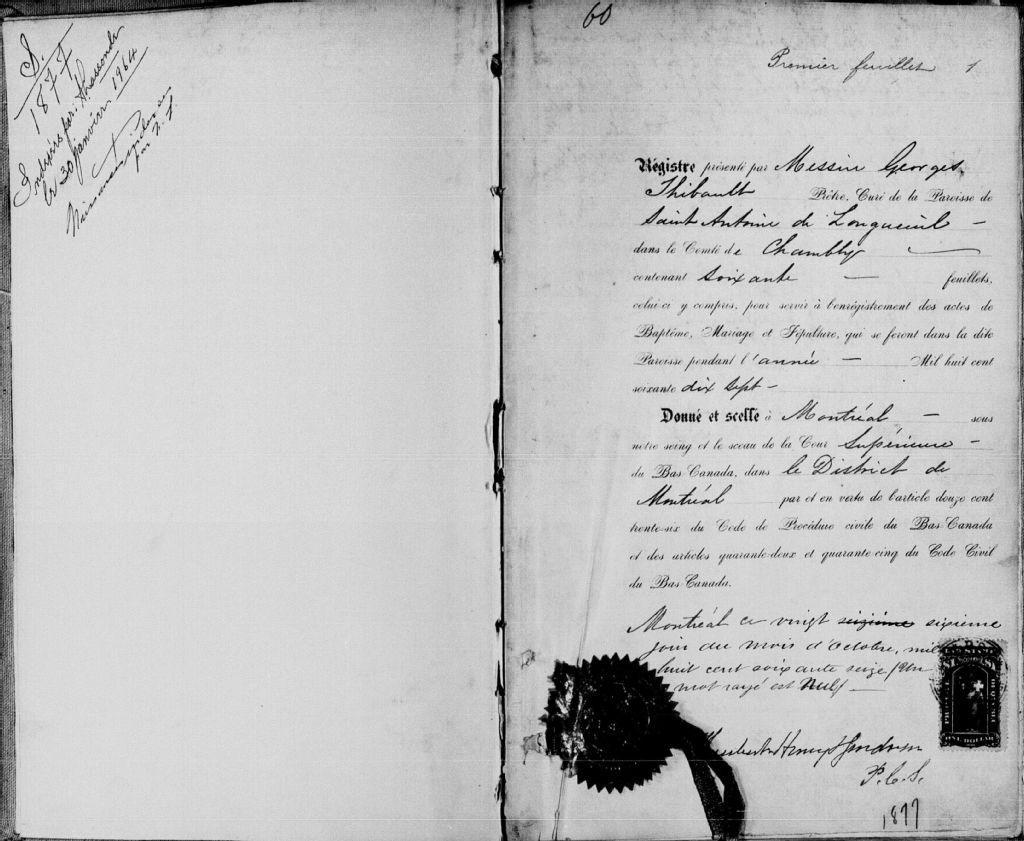 S.
1877
le 30 janvier 1964
par
60
Premier feuillet 1
Régistre présenté par Messire Georges
Thibault Prêtre, Curé de la Paroisse de
Saint Antoine de Longueuil —
dans le Comté de Chambly —
contenant Soixante — feuillets,
celui-ci y compris, pour servir à l'enrégistrement des actes de
Baptême, Mariage et Sépulture, qui se feront dans la dite
Paroisse pendant l'année — Mil huit cent
soixante dix sept —
Donné et scellé à Montréal — sous
notre seing et le sceau de la Cour Supérieure —
du Bas-Canada, dans le District de
Montréal par et en vertu de l'article douze cent
trente-six du Code de Procédure civile du Bas-Canada
et des articles quarante-deux et quarante-cinq du Code Civil
du Bas-Canada.
Montréal ce vingt seizième sixième
jour du mois d'octobre, mil
huit cent soixante seize (Un
mot rayé est Nul) —
P.C.S.
1877
ONE DOLLAR